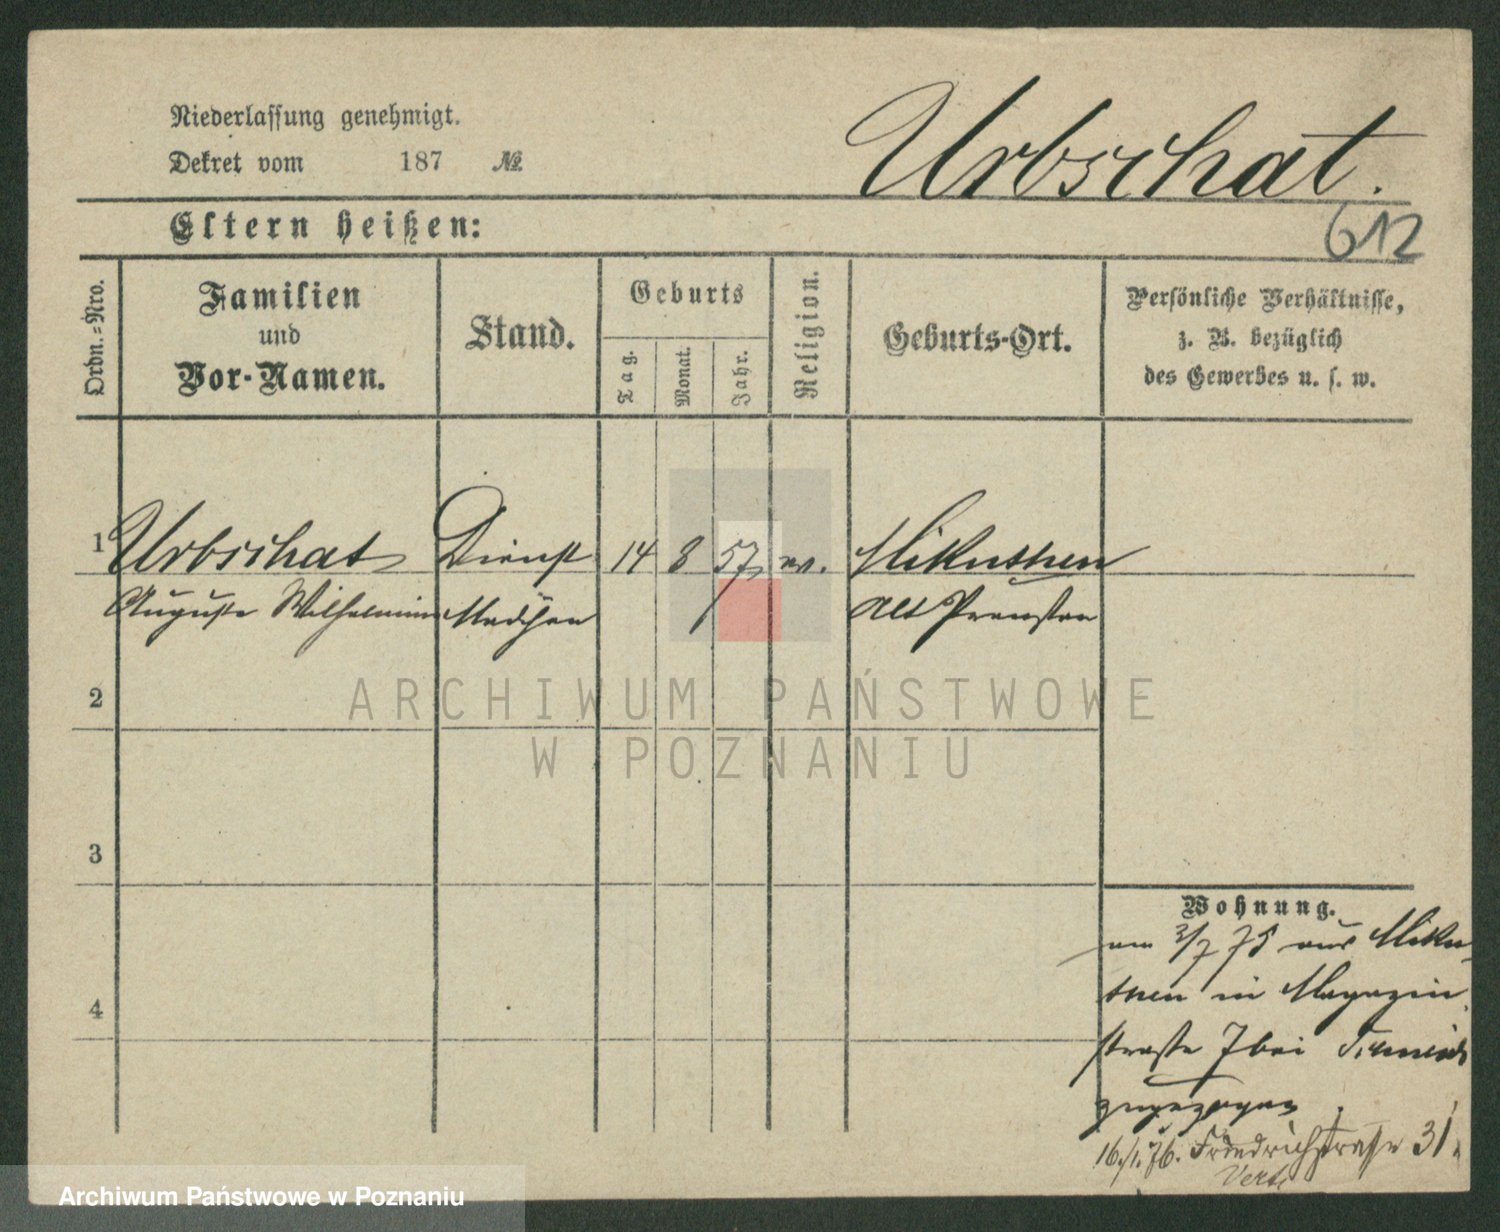 Niederlassung genehmigt.
Dekret vom 187 №
Urbschat.
Eltern heißen:
612
Ordn.=Nro.
Familien
und
Vor-Namen.
Stand.
Geburts
Tag.
Monat.
Jahr.
Religion.
Geburts-Ort.
Persönliche Verhältnisse,
z. B. bezüglich
des Gewerbes u. s. w.
1 Urbschat Dienst 14 8 57 ev.
Auguste Wilhelmine Mädchen Alt Preußen
ARCHIWUM PAŃSTWOWE
W POZNANIU
2
3
4
Wohnung.
am 3/7 75 aus
in Magazin
straße 7 bei
zugezogen.
16./1. 76. Friedrichstraße 31.
Verte
Archiwum Państwowe w Poznaniu